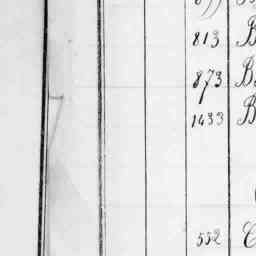 813 B
873 B
1433 B
552 C